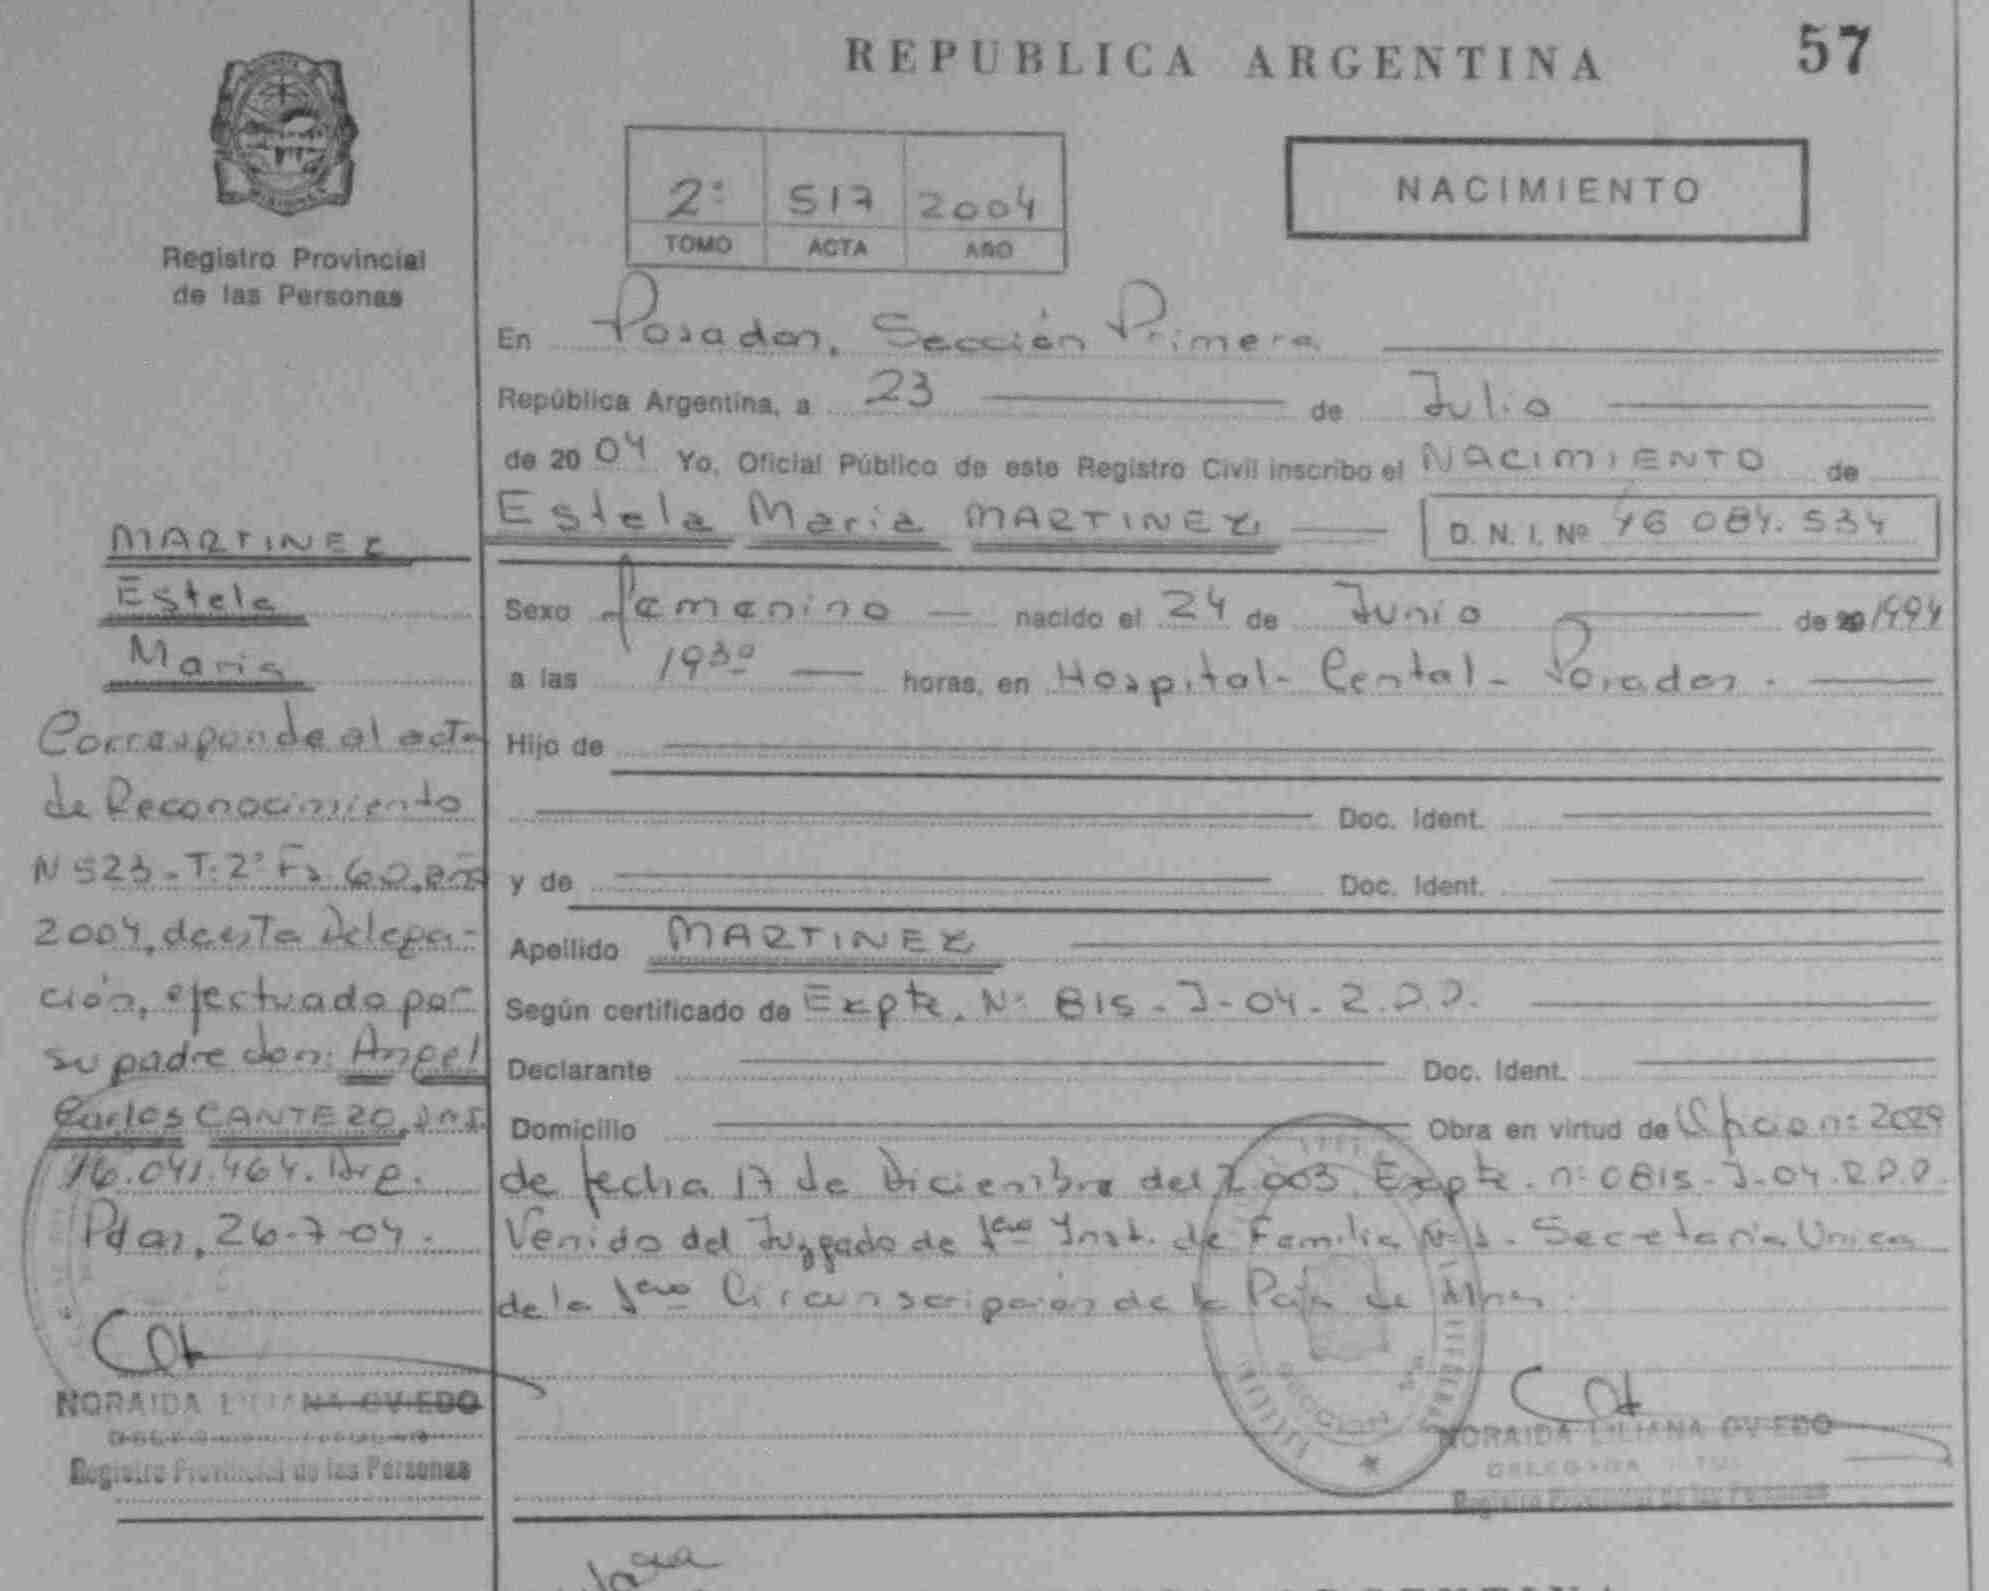 REPUBLICA ARGENTINA
57
2º 517 2004
TOMO ACTA AÑO
NACIMIENTO
Registro Provincial
de las Personas
En Posadas, Sección Primera
República Argentina, a 23 de Julio
de 2004 Yo, Oficial Público de este Registro Civil inscribo el NACIMIENTO de
Estela Maria MARTINEZ D. N. I. Nº 46 084.534
Sexo Femenino nacido el 24 de Junio de 20 1994
a las 1930 horas, en Hospital - Cental - Posadas.
Hijo de
Doc. Ident.
y de Doc. Ident.
Apellido MARTINEZ
Según certificado de Expte. Nº 815-J-04-2.P.D.
Declarante Doc. Ident.
Domicilio Obra en virtud de Oficio nº 2029
de fecha 17 de Diciembre del 2.003, Expte. nº 0815-J-04.
Venido del Juzgado de 1era Inst. de Familia Nº 1 - Secretaría Unica
de la 1era Circunscripción de la Pcia de Mnes.
MARTINEZ
Estela
Maria
Corresponde al acta
de Reconocimiento
N 523 - T: 2º Fº 60, año
2004, de esta Delega-
ción, efectuado por
su padre don: Angel
Carlos CANTERO, DNI.
16.041.464. Arg.
Pdas, 26-7-04.
NORAIDA LILIANA OVIEDO
Registro Provincial de las Personas
SECCION
NORAIDA LILIANA OVIEDO
DELEGADA
Registro Provincial de las Personas